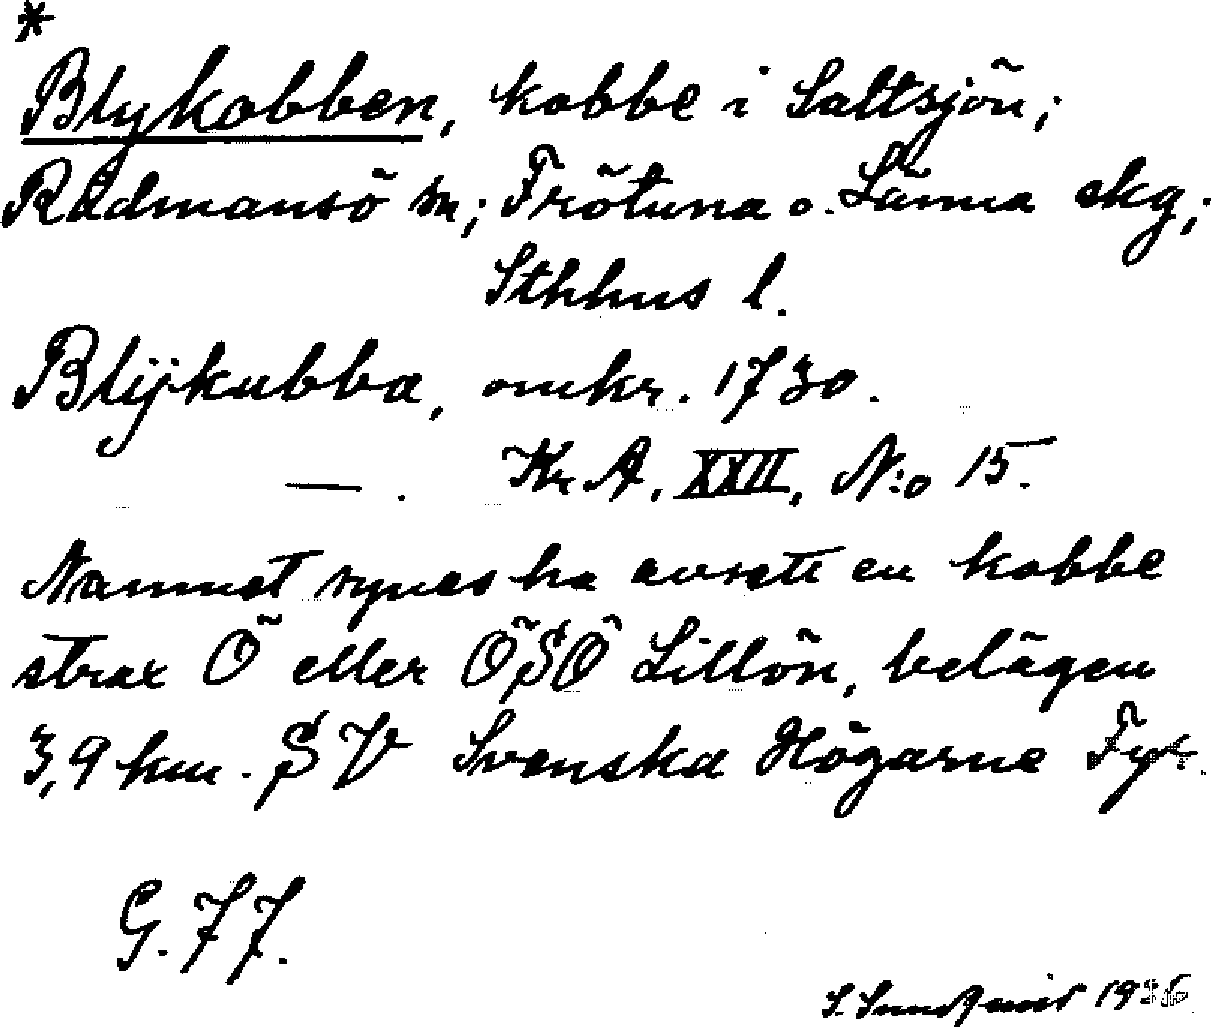 *
Blykobben, kobbe i Saltsjön;
Rådmansö sn; Frötuna o. Länna skg;
Sthhus l.
Blijkubba, omkr. 1730.
— . Kr A, XXII, N:o 15.
Namnet synes ha avsett en kobbe
strax Ö eller ÖSÖ Lillön, belägen
3,9 km. SV Svenska Högarne Fyr.
G. 77.
S. Sundqvist